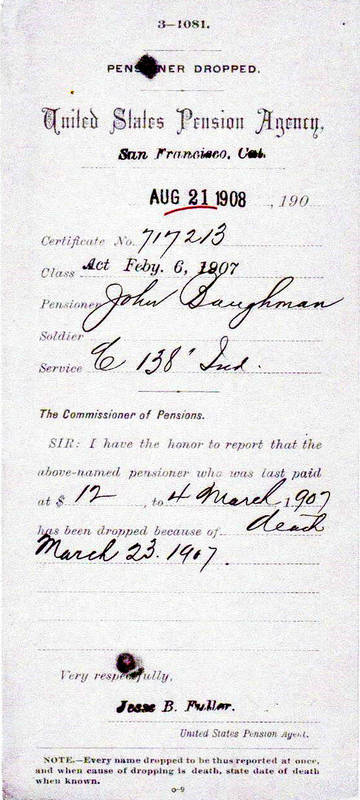 3—1081.
PENSIONER DROPPED.
United States Pension Agency,
San Francisco, Cal.
AUG 21 1908 , 190
Certificate No. 717213
Class Act Feby. 6, 1907
Pensioner John Baughman
Soldier
Service C 138" Ind.
The Commissioner of Pensions.
SIR: I have the honor to report that the
above-named pensioner who was last paid
at $ 12 , to 4 March, 1907
has been dropped because of death
March 23. 1907.
Very respectfully,
Jesse B. Fuller.
United States Pension Agent.
NOTE.—Every name dropped to be thus reported at once,
and when cause of dropping is death, state date of death
when known.
6-9